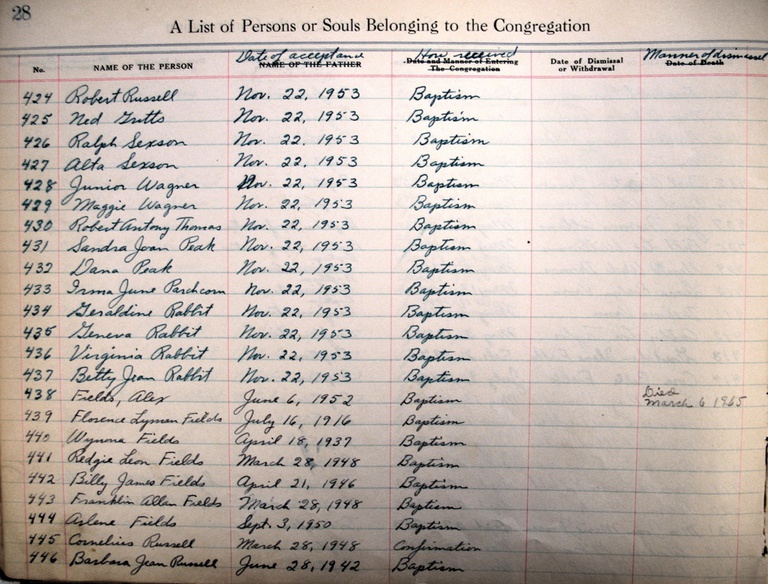 28
A List of Persons or Souls Belonging to the Congregation
Date of acceptance How received Manner of dismissal
No. NAME OF THE PERSON NAME OF THE FATHER Date and Manner of Entering The Congregation Date of Dismissal or Withdrawal Date of Death
424 Robert Russell Nov. 22, 1953 Baptism
425 Ned Gutts Nov. 22, 1953 Baptism
426 Ralph Sexson Nov. 22, 1953 Baptism
427 Alta Sexson Nov. 22, 1953 Baptism
428 Junior Wagner Nov. 22, 1953 Baptism
429 Maggie Wagner Nov. 22, 1953 Baptism
430 Robert Antony Thomas Nov. 22, 1953 Baptism
431 Sandra Joan Peak Nov. 22, 1953 Baptism
432 Dana Peak Nov. 22, 1953 Baptism
433 Irma June Parchcorn Nov. 22, 1953 Baptism
434 Geraldine Rabbit Nov. 22, 1953 Baptism
435 Geneva Rabbit Nov. 22, 1953 Baptism
436 Virginia Rabbit Nov. 22, 1953 Baptism
437 Betty Jean Rabbit Nov. 22, 1953 Baptism
438 Fields, Alex June 6, 1952 Baptism Died March 6 1965
439 Florence Lyman Fields July 16, 1916 Baptism
440 Wynona Fields April 18, 1937 Baptism
441 Redgie Leon Fields March 28, 1948 Baptism
442 Billy James Fields April 21, 1946 Baptism
443 Franklin Allan Fields March 28, 1948 Baptism
444 Arlene Fields Sept. 3, 1950 Baptism
445 Cornelius Russell March 28, 1948 Confirmation
446 Barbara Jean Russell June 28, 1942 Baptism